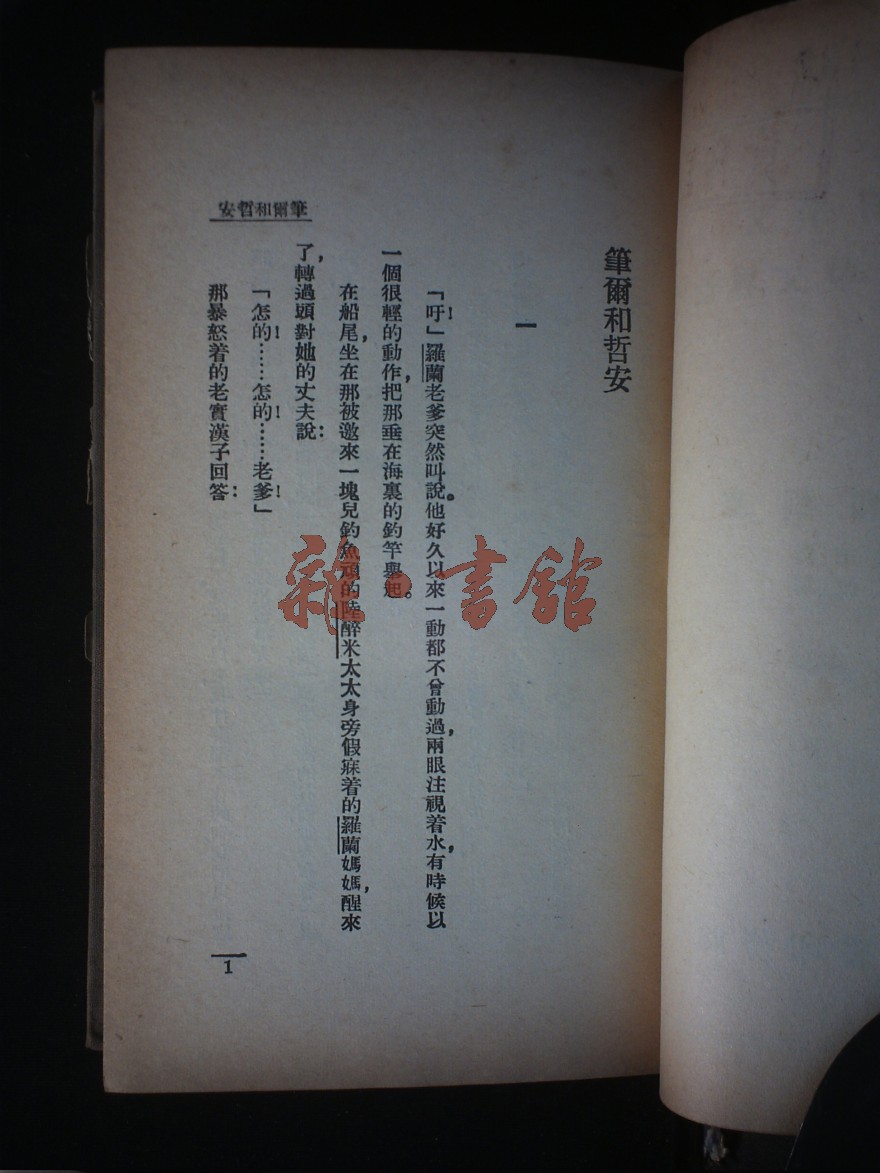 筆爾和哲安
一
「吁！」羅蘭老爹突然叫說。他好久以來一動都不曾動過，兩眼注視着水，有時候以
一個很輕的動作，把那垂在海裏的釣竿舉起。
在船尾，坐在那被邀來一塊兒釣魚頑的陸醉米太太身旁假寐着的羅蘭媽媽，醒來
了，轉過頭對她的丈夫說：
「怎的！……怎的！……老爹！」
那暴怒着的老實漢子回答：
筆爾和哲安
1
雜·書館